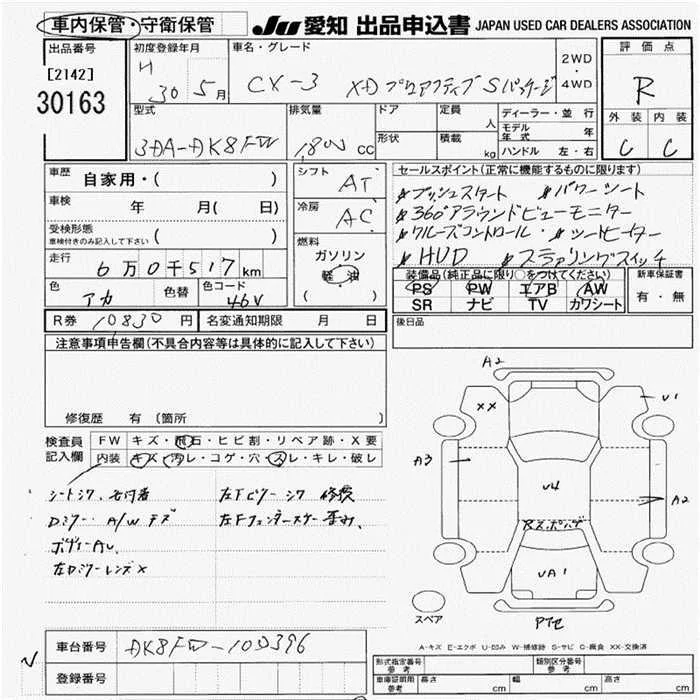 車内保管・守衛保管
JU 愛知 出品申込書 JAPAN USED CAR DEALERS ASSOCIATION
出品番号
[2142]
30163
初度登録年月
H 30 5月
車名・グレード
CX-3 XD プロアクティブ Sパッケージ
2WD
・
4WD
評価点
R
外装 内装
C C
型式
3DA-DK8FW
排気量
1,800 CC
ドア
形状
定員 人
積載 kg
ディーラー・並 行
モデル年式 年
ハンドル 左・右
車歴 自家用・( )
車検 年 月( 日)
受検形態
車検付きのみ記入して下さい ( )
走行 6万0千517km
色 アカ 色替 色コード 46V
シフト AT
冷房 AC
燃料
ガソリン
軽・油
( )
セールスポイント(正常に機能するものに限ります)
#プッシュスタート #パワーシート
#360°アラウンドビューモニター
#クルーズコントロール・#シートヒーター
#HUD #ステアリングスイッチ
装備品(純正品に限り○をつけてください)
PS PW エアB AW
SR ナビ TV カワシート
新車保証書
有・無
後日品
R券 10,830円 名変通知期限 月 日
注意事項申告欄(不具合内容等は具体的に記入して下さい)
修復歴 有(箇所
検査員
記入欄
FW キズ・飛石・ヒビ割・リペア跡・X要
内装 キズ・汚レ・コゲ・穴・スレ・キレ・破レ
シートシワ、
左Fピラー シワ 修復
Dミラー A/W キズ
左Fフェンダーステー 歪み、
ボディーAU、
左ドミラーレンズX
A2
XX
U1
A3
U4
A2
UA1
スペア
A-キズ E-エクボ U-凹み W-補修跡 S-サビ C-腐食 XX-交換済
車台番号 DK8FW-100396
登録番号
形式指定番号
参考
類別区分番号
参考
車庫証明用
参考
長さ cm 幅 cm 高さ cm